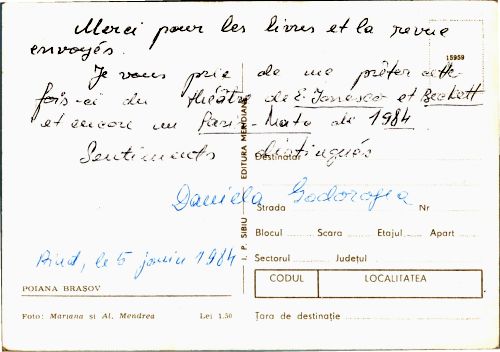 Merci pour les livres et la revue
envoyés.
Je vous prie de me prêter cette
fois-ci du théâtre de E. Ionesco et Beckett
et encore un Paris-Match de 1984.
Sentiments distingués
Daniela
, le 5 janvier 1984
15959
EDITURA MERIDIANE
I. P. SIBIU
Destinatar
Strada Nr
Blocul Scara Etajul Apart
Sectorul Județul
CODUL LOCALITATEA
Țara de destinație
POIANA BRAȘOV
Foto: Mariana si Al. Mendrea Lei 1.50